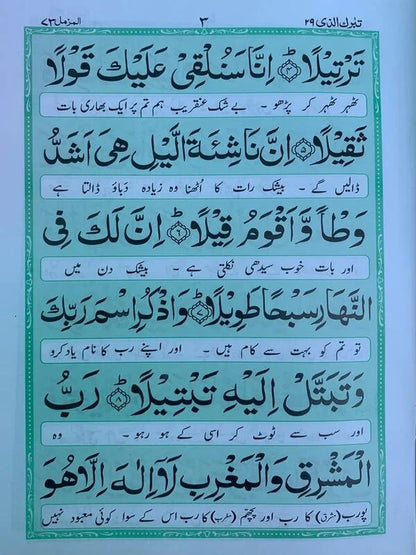 تبٰرك الذی ۲۹ ۳ المزمل ۷۳
تَرْتِيْلًا ؕ﴿۴﴾ اِنَّا سَنُلْقِیْ عَلَيْكَ قَوْلًا
ٹھہر ٹھہر کر پڑھو ۔ بے شک عنقریب ہم تم پر ایک بھاری بات
ثَقِيْلًا ﴿۵﴾ اِنَّ نَاشِئَةَ الَّيْلِ هِیَ اَشَدُّ
ڈالیں گے ۔ بیشک رات کا اٹھنا وہ زیادہ دباؤ ڈالتا ہے
وَطْاً وَّاَقْوَمُ قِيْلًا ؕ﴿۶﴾ اِنَّ لَكَ فِی
اور بات خوب سیدھی نکلتی ہے ۔ بیشک دن میں
النَّهَارِ سَبْحًا طَوِيْلًا ؕ﴿۷﴾ وَاذْكُرِ اسْمَ رَبِّكَ
تو تم کو بہت سے کام ہیں ۔ اور اپنے رب کا نام یاد کرو
وَتَبَتَّلْ اِلَيْهِ تَبْتِيْلًا ؕ﴿۸﴾ رَبُّ
اور سب سے ٹوٹ کر اسی کے ہو رہو ۔ وہ
الْمَشْرِقِ وَالْمَغْرِبِ لَاۤ اِلٰهَ اِلَّا هُوَ
پورب (مشرق) کا رب اور پچھم (مغرب) کا رب اس کے سوا کوئی معبود نہیں